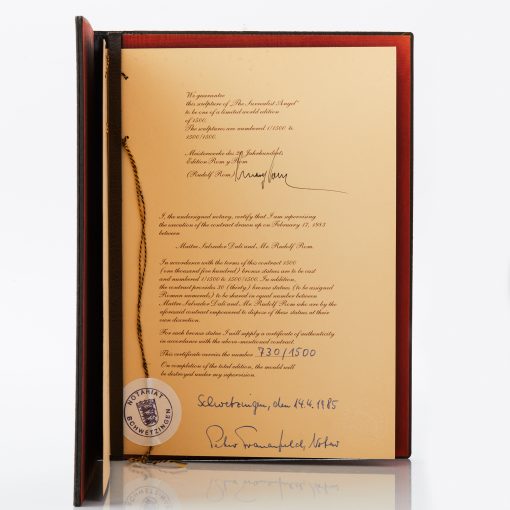 We guarantee
this sculpture of "The Surrealist Angel"
to be one of a limited world edition
of 1500.
The sculptures are numbered 1/1500 to
1500/1500.
Meisterwerke des 20. Jahrhunderts
Edition Rom y Rom
(Rudolf Rom)
I, the undersigned notary, certify that I am supervising
the execution of the contract drawn up on February 17, 1983
between
Maître Salvador Dali and Mr. Rudolf Rom.
In accordance with the terms of this contract 1500
(one thousand five hundred) bronze statues are to be cast
and numbered 1/1500 to 1500/1500. In addition,
the contract provides 30 (thirty) bronze statues (to be assigned
Roman numerals) to be shared in equal number between
Maître Salvador Dali and Mr. Rudolf Rom who are by the
aforesaid contract empowered to dispose of these statues at their
own discretion.
For each bronze statue I will supply a certificate of authenticity
in accordance with the above-mentioned contract.
This certificate carries the number 730/1500
On completion of the total edition, the mould will
be destroyed under my supervision.
Schwetzingen, den 14.4.1985
NOTARIAT
SCHWETZINGEN
Peter Frauenfeld, Notar